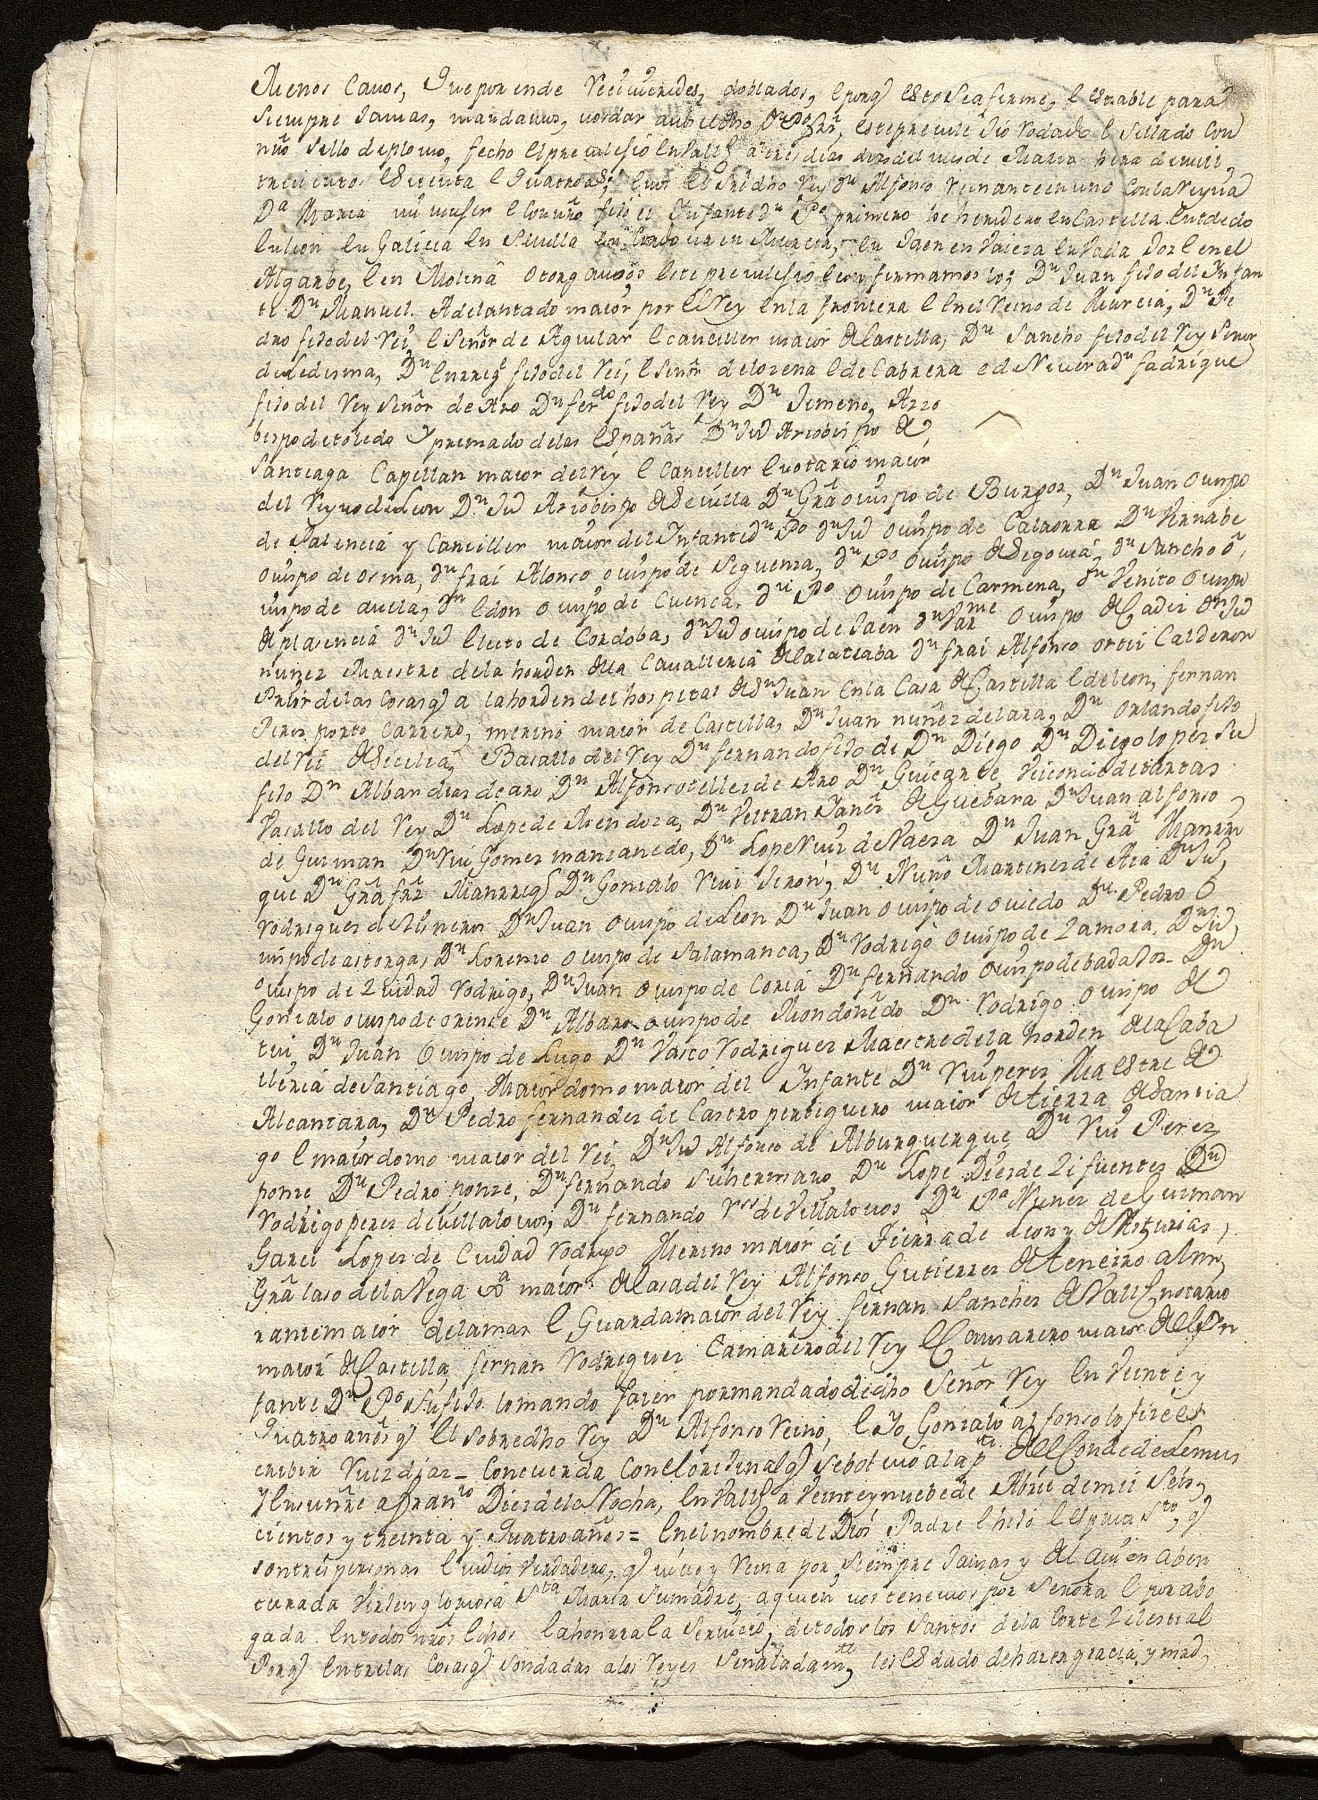 Menos Cauos, que por ende recivieredes, doblados, e porq̃ esto sea firme, e estable para
siempre Jamas, mandamos, uos dar a uos el dho Dn Po frz, este preuilejio rodado e sellado con
nr̃o sello de plomo, fecho el preuilejio en Valld a tres dias dias del mes de Marzo hera de mill
trecientos e setenta e quatro as; e nos el sr̃edho Rey dn Alfonso reinante en uno con la reyna
Da Maria mi muger e con nr̃o fijo el Infante dn Po primero los heredero en Castilla en toledo
en leon en Galicia en Seuilla en Cordoua en Murcia, en Jaen en Vaeza en Vadajoz e en el
Algarbe, e en Molina otorgamos este preuilejio e confirmamos lo; Dn Juan fijo del Infan
te Dn Manuel Adelantado maior por el Rey en la frontera e en el Reino de Murcia, Dn Pe
dro fijo del Rei, e Señor de Aguilar e canciller maior de Castilla, Dn Sancho fijo del Rey Señor
de Ledesma, Dn Enrriq̃ fijo del Rei, e Señor de lorena e de Cabrera e de Riuera dn fadrique
fijo del Rey Señor de Aro Dn ferdo fijo del Rey Dn Jemeno, Arzo
bispo de toledo y primado de las españas Dn Ju Arzobispo de
Santiago Capellan maior del Rey e Canciller e notario maior
del Reyno de Leon Dn Ju Arzobispo de Seuilla Dn Gra ouispo de Burgos, Dn Juan ouispo
de Palencia y Canciller maior del Infante dn Po dn Ju ouispo de Calaorra Dn Vernabe
ouispo de osma, dn frai Alonso ouispo de Siguenza, dn Po ouispo de Segouia, dn Sancho o
uispo de auila, dn Edon ouispo de Cuenca, dn Po ouispo de Carmena, dn Venito ouispo
de plasencia dn Ju Electo de Cordoba, dn Ju ouispo de Jaen dn Barme ouispo de Cadiz dn Ju
nuñez Maestre de la horden de la Caualleria de Calatraba dn frai Alfonso ortiz Calderon
Prior de las Cosas q̃ a la horden del hospital de Sn Juan en la Casa de Castilla e de leon, fernan
Perez porto Carrero, merino maior de Castilla, Dn Juan nuñez de lara, Dn Orlando fijo
del Rei de Secilia, Basallo del Rey Dn fernando fijo de Dn Diego Dn Diego lopez su
fijo Dn Albar dias de aro Dn Alfonso tellez de Aro Dn Guicarte Vizconde de tartas
Vasallo del Rey Dn Lope de Mendoza, Dn Veltran Ianez de Guebara Dn Juan alfonso
de Guzman Dn Rui Gomez manzanedo, Dn Lope Ruiz de Vaeza Dn Juan Gra Manrri
que Dn Gra frz Manrriq̃ Dn Gonzalo Rui Jiron, Dn Nuño Martinez de Aza Dn Ju
rodriguez de Sisneros Dn Juan ouispo de Leon Dn Juan ouispo de ouiedo Dn Pedro o
uispo de astorga, Dn Lorenzo ouispo de Salamanca, Dn Rodrigo ouispo de Zamora Dn Ju
ouispo de Ziudad Rodrigo, Dn Juan ouispo de Coria Dn fernando ouispo de badajoz Dn
Gonzalo ouispo de orense Dn Albaro ouispo de Mondoñedo Dn Rodrigo ouispo de
tui Dn Juan ouispo de Lugo Dn Vasco Rodriguez Maestre de la horden de la Caba
lleria de Santiago Maiordomo maior del Infante Dn Rui perez Maestre de
Alcantara, Dn Pedro fernandez de Castro pertiguero maior de tierra de Santia
go e maiordomo maior del Rei, Dn Ju Alfonso de Alburquerque Dn Rui Perez
ponze Dn Pedro ponze, Dn fernando su hermano, Dn Lope Diez de Zifuentes Dn
Rodrigo perez de uillalouos, Dn fernando Rrs de Villalouos Dn Po Nuñez de Guzman
Garci Lopez de Ciudad Rodrigo Merino maior de Tierra de Leon y de Asturias,
Gra laso de la Vega Ja maior de Casa del Rey Alfonso Gutierrez de teneiro almi
rante maior de la mar e Guarda maior del Rey fernan Sanchez de Valld notario
maior de Castilla, fernan Rodriguez Camarero del Rey e Camarero maior del In
fante Dn Po su fijo lo mando fazer por mandado de dho Señor Rey en Veinte y
quatro años q̃ el sobredho Rey Dn Alfonso Reino, e yo Gonzalo alfonso lo fize es
cribir Ruiz diaz = Concuerda con el orijinal q̃ se bolvió a la pte del Conde de Lemus
y en su nre a franco Diez de la Rocha, en Valld a Veinte y nuebe de Abril de mil Seis
cientos y treinta y quatro años = En el nombre de Dios Padre e hijo e Espiritu Sto, q̃
son tres personas e un dios Verdadero, q̃ uiue y Reina por siempre Jamas y de la uien aben
turada Virjen gloriosa Sta Maria su madre, a quien nos tenemos por Señora e por abo
gada en todos nr̃os fechos e a honrra e a seruicio, de todos los Santos de la Corte Zelestial
Porq̃ entre las Cosas q̃ son dadas a los reyes señaladamte les es dado de hazer gracia y mrd,